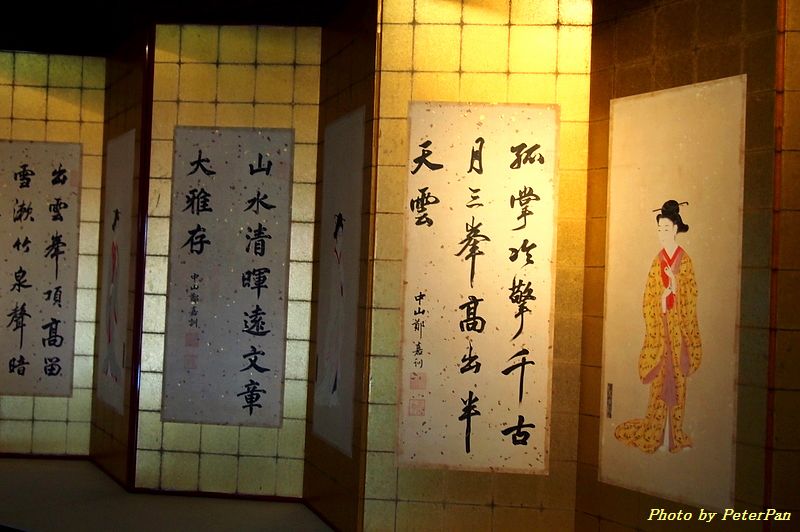 孤掌冷擎千古
月三峯高出半
天雲
中山鄭嘉訓
山水清暉遠文章
大雅存
中山鄭嘉訓
出雲峯頂高留
雪漱竹泉聲暗
Photo by PeterPan